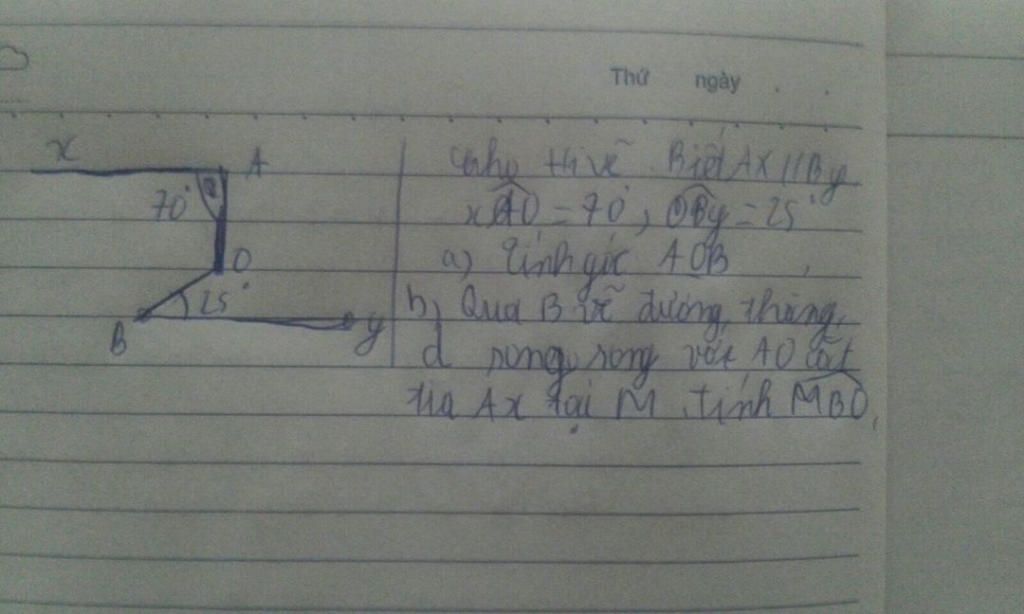 Thứ ngày
x A
70°
O
25°
B y
Cho H vẽ Biết AX // By
xAO = 70°, OBy = 25°
a) Tính góc AOB
b) Qua B vẽ đường thẳng
d song song với AO cắt
tia Ax tại M tính MBO